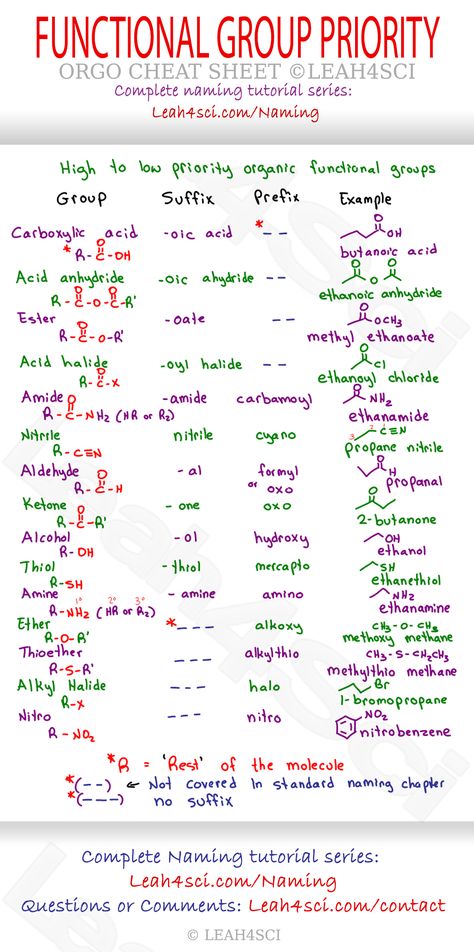 FUNCTIONAL GROUP PRIORITY
ORGO CHEAT SHEET ©LEAH4SCI
Complete naming tutorial series:
Leah4sci.com/Naming
High to low priority organic functional groups
Group Suffix Prefix Example
Carboxylic acid -oic acid *-- OH
*R-C-OH O butanoic acid
Acid anhydride -oic ahydride -- O O O
R-C-O-C-R O O ethanoic anhydride
Ester -oate -- O OCH3
R-C-O-R' O methyl ethanoate
Acid halide -oyl halide -- O Cl
R-C-X O ethanoyl chloride
Amide -amide carbamoyl O NH2
R-C-NH2 (HR or R2) O ethanamide
Nitrile nitrile cyano 3 2 1 C≡N
R-C≡N propane nitrile
Aldehyde -al formyl or oxo O H
R-C-H O propanal
Ketone -one oxo O
R-C-R' O 2-butanone
Alcohol -ol hydroxy OH
R-OH ethanol
Thiol -thiol mercapto SH
R-SH ethanethiol
Amine -amine amino NH2
R-NH2 (HR or R2) 1° 2° 3° ethanamine
Ether *--- alkoxy CH3-O-CH3
R-O-R' methoxy methane
Thioether --- alkylthio CH3-S-CH2CH3
R-S-R' methylthio methane
Alkyl Halide --- halo Br
R-X 1-bromopropane
Nitro --- nitro NO2
R-NO2 nitrobenzene
*R = 'Rest' of the molecule
*(--) ← Not covered in standard naming chapter
*(---) no suffix
Complete Naming tutorial series:
Leah4sci.com/Naming
Questions or Comments: Leah4sci.com/contact
© LEAH4SCI
Leah4sci